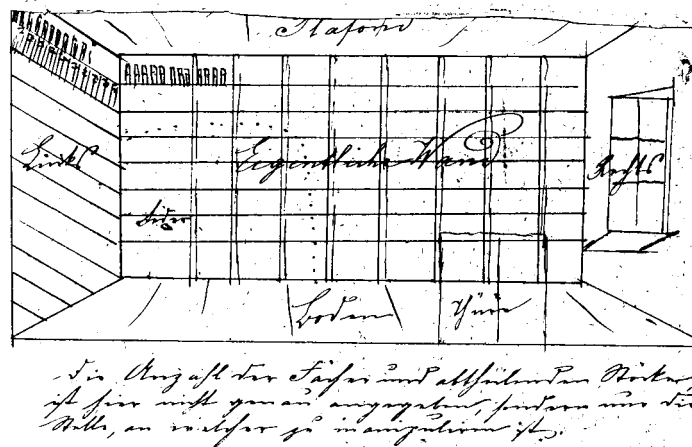 Plafond
Links
Eigentliche Wand
Rechts
Boden
Thüre
Die Anzahl der Fächer und abtheilenden Stöcke
ist hier nicht genau angegeben, sondern nur die
Stelle, an welcher zu manipuliren ist.